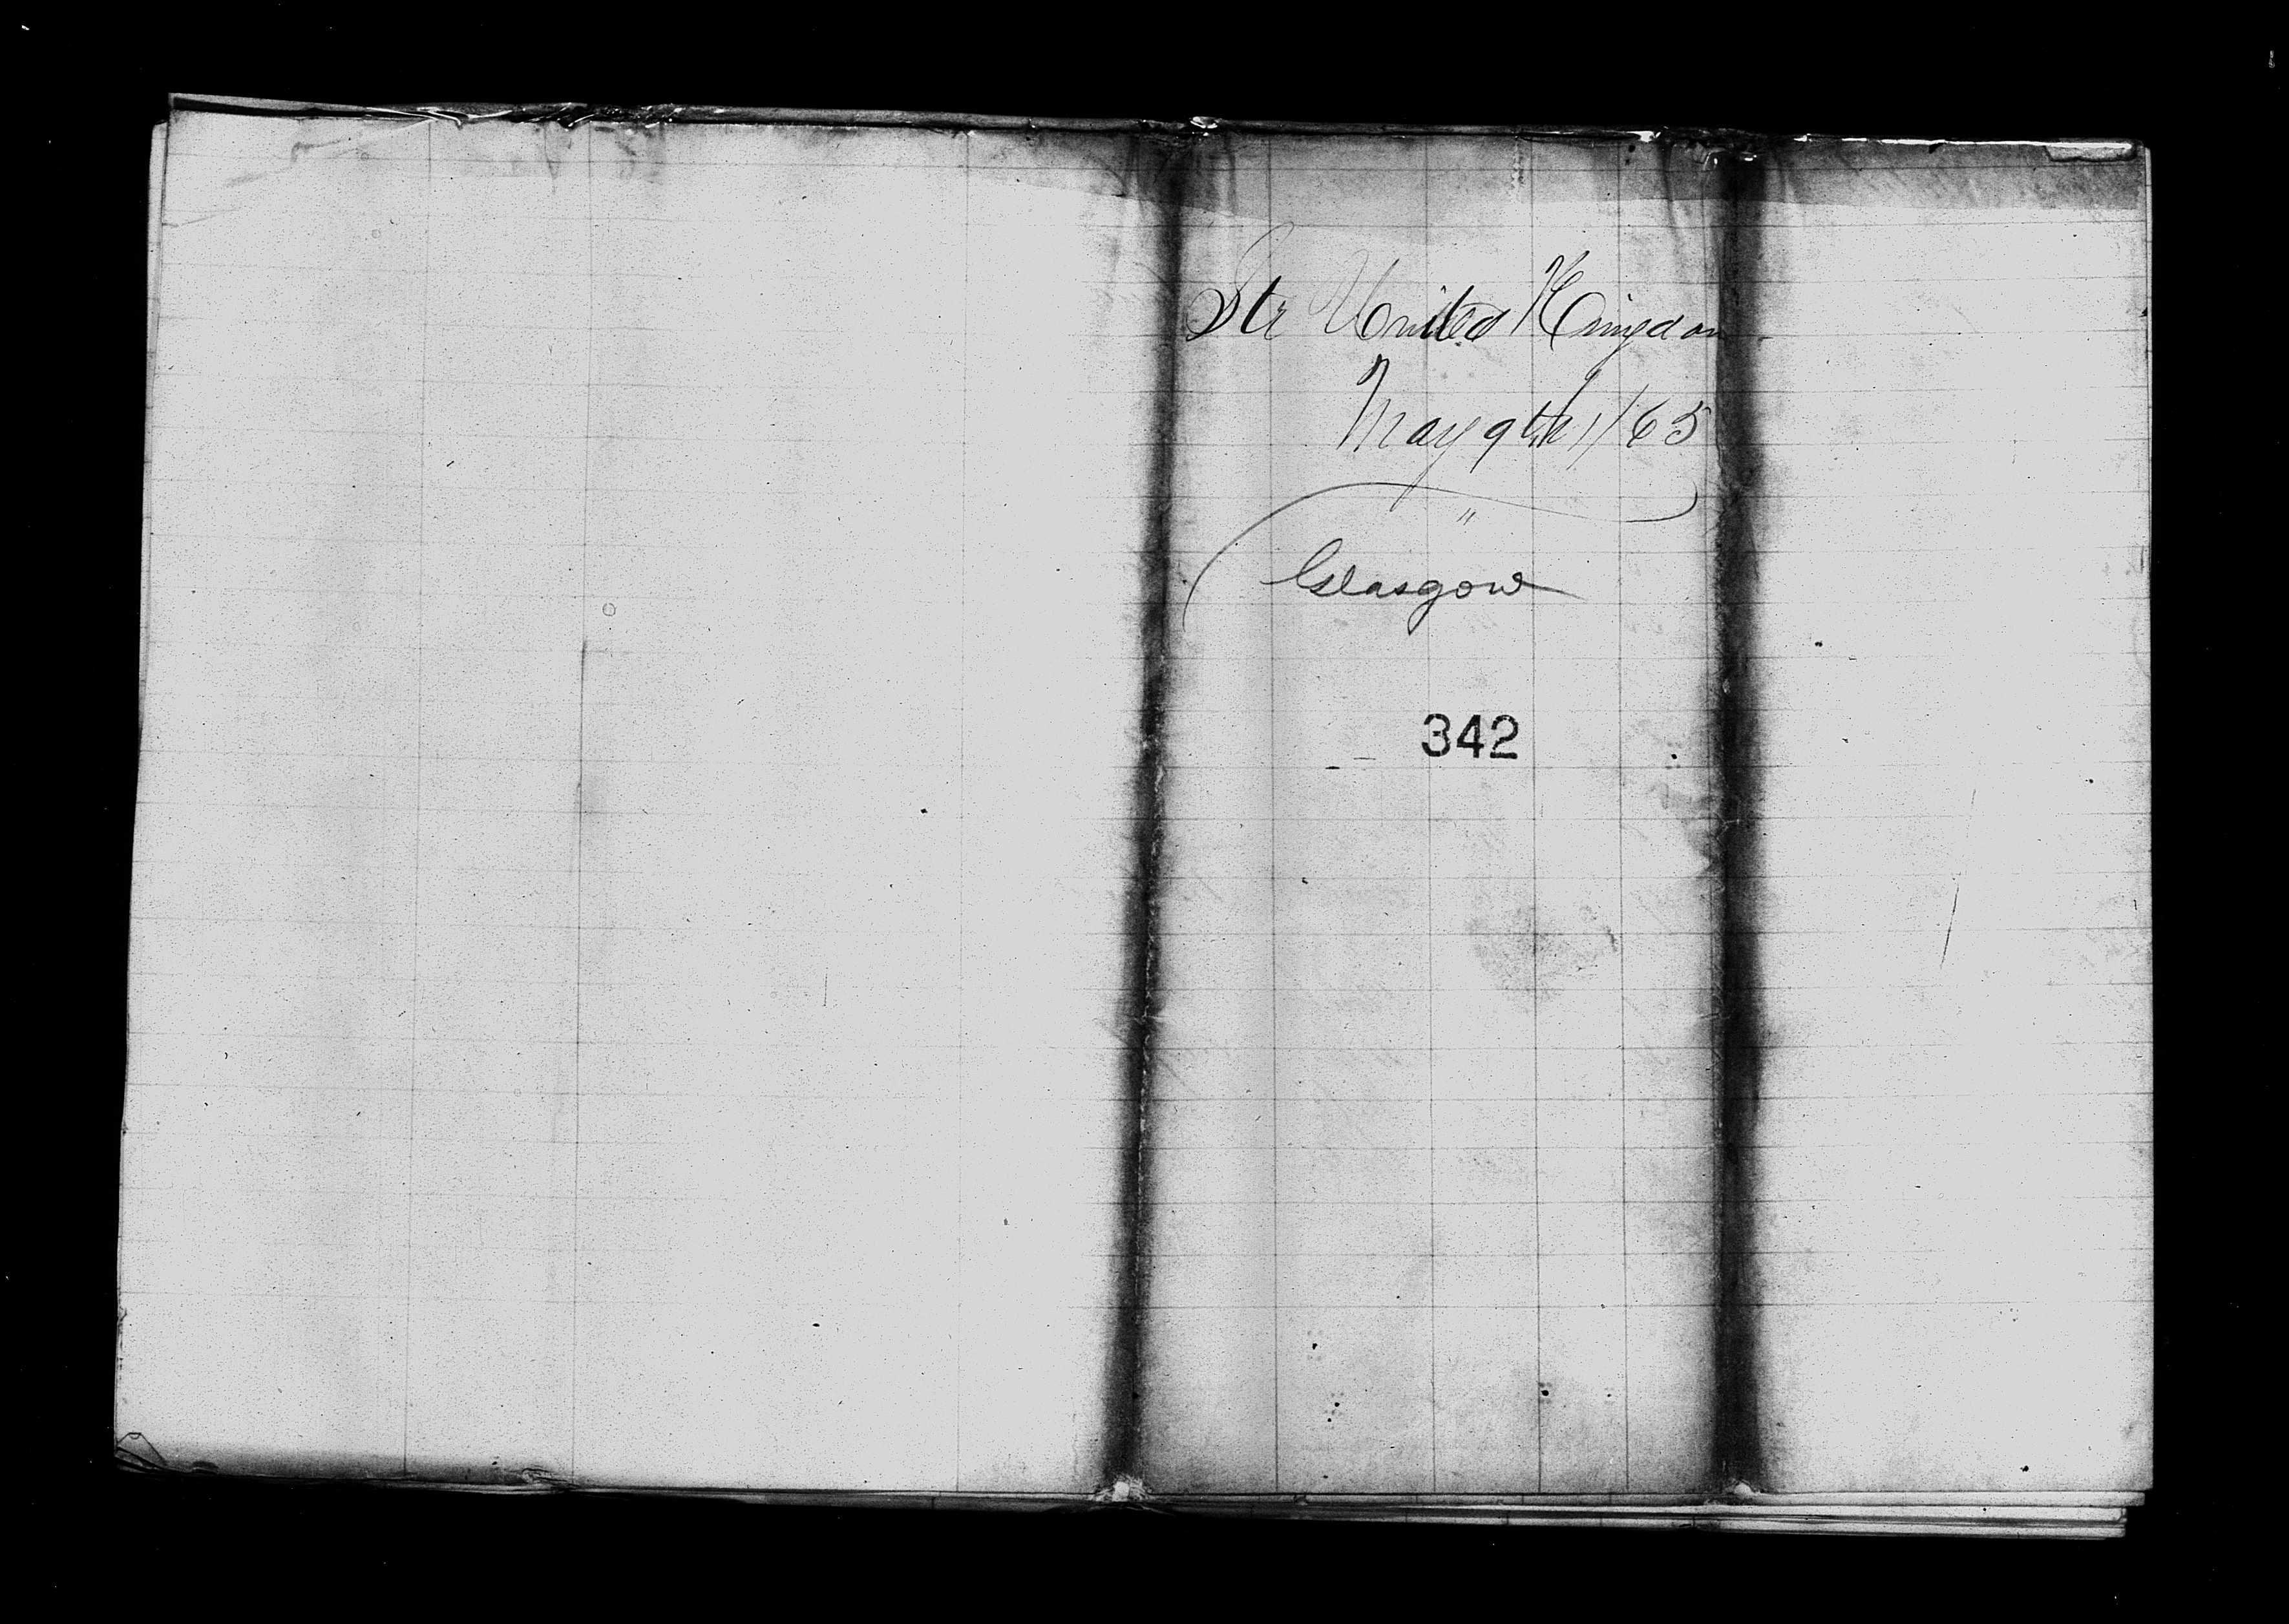 Str United Kingdom
May 9th /65
"
Glasgow
342